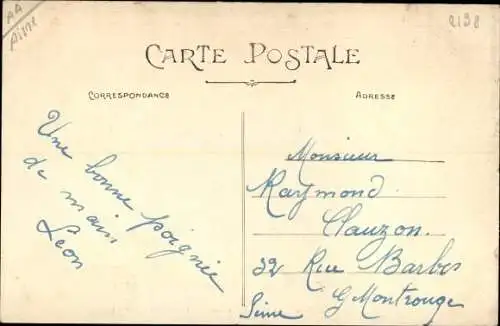 AA
Aisne
2198
CARTE POSTALE
CORRESPONDANCE
ADRESSE
Une bonne poignée
de main
Léon
Monsieur
Raymond
Clauzon.
32 Rue Barbes
G Montrouge
Seine